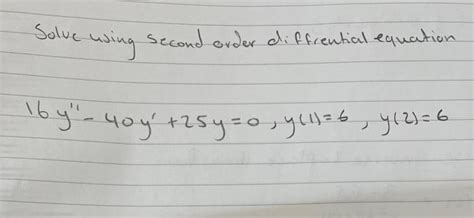 Solve using second order diffrential equation
16y" - 40y' + 25y = 0, y(1) = 6, y(2) = 6